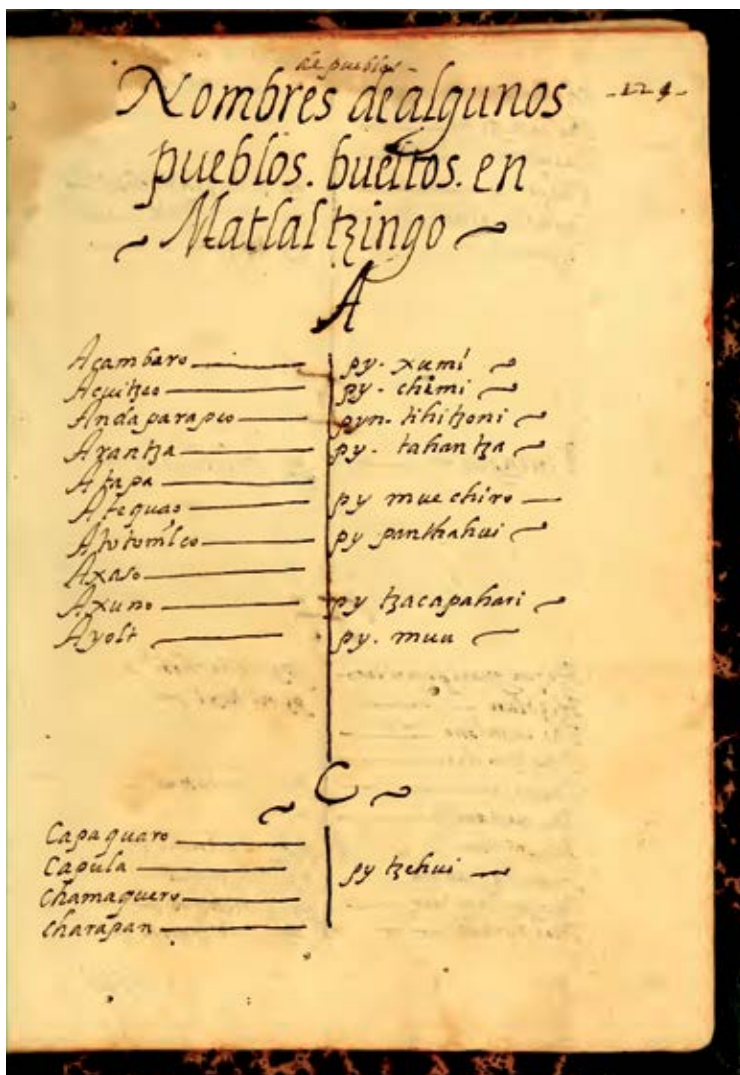 de pueblos -
Nombres de algunos -124-
pueblos. bueltos. en
Matlaltzingo
A
Acambaro py. xumi
Acuitzeo py. chimi
Andaparapeo pyn. tihitzoni
Arantza py. tahantza
Atapa
Ateguao py muechiro
Atotomilco py panthahui
Axaso
Axuno py tzacapahari
Ayolt py. muu
C
Capaquaro
Capula py tzehui
Chamaquero
Charapan